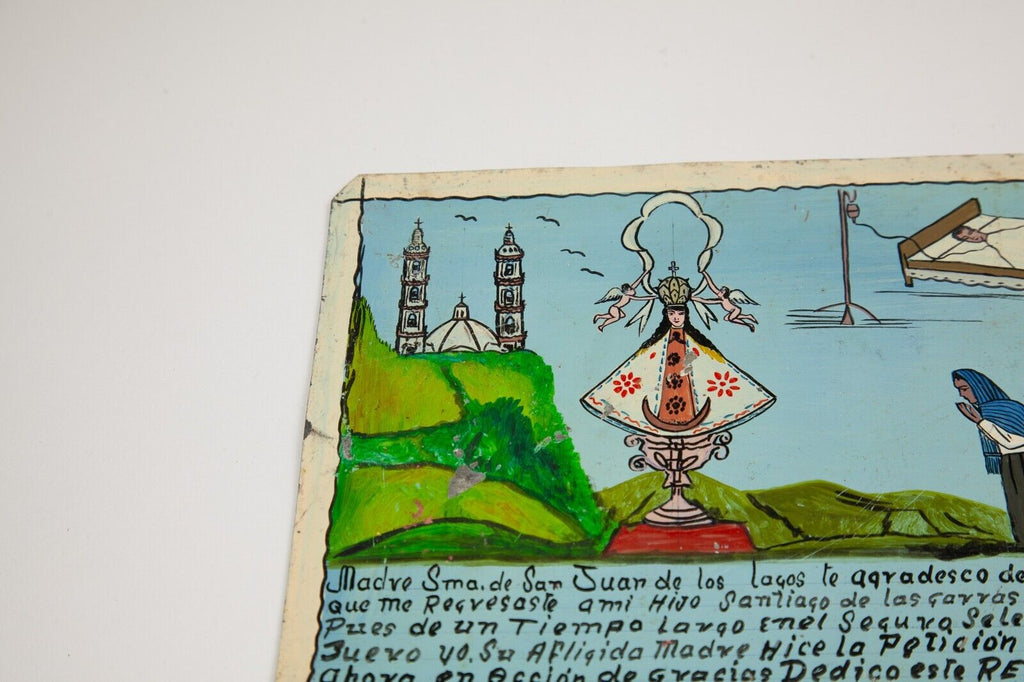 Madre Sma. de San Juan de los lagos te agradesco de
que me Regresaste ami Hijo Santiago de las garras
Pues de un Tiempo Largo Enel Seguro Sele
Juevo yo. Su Afligida Madre Hice la Petición
Ahora en Acción de Gracias Dedico este RE